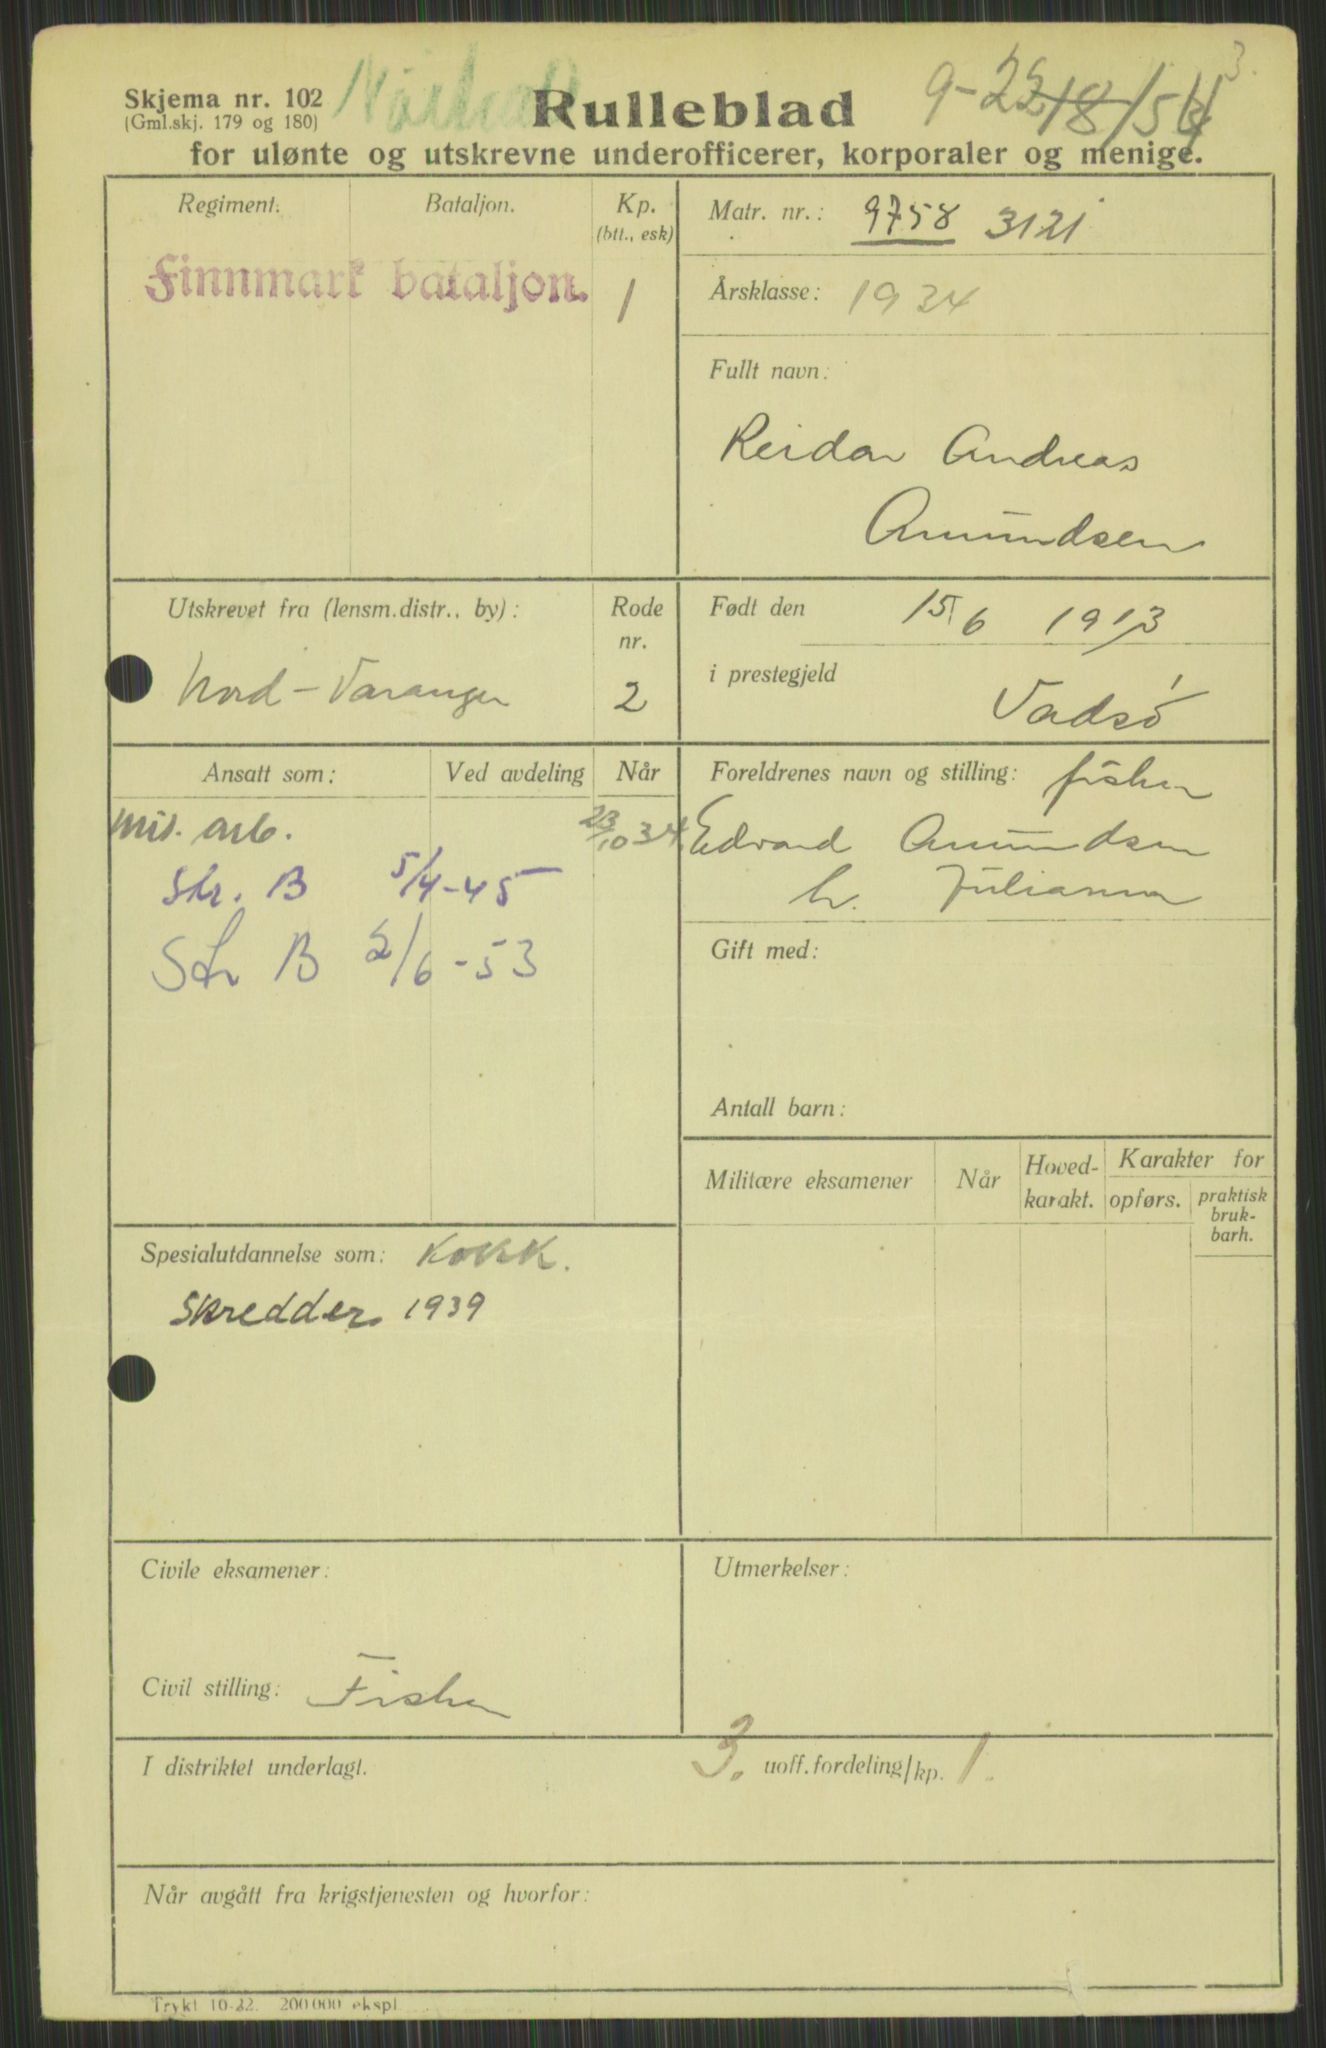 Skjema nr. 102
(Gml.skj. 179 og 180)
Rulleblad
for ulønte og utskrevne underofficerer, korporaler og menige.
Regiment.
Bataljon.
Kp.
(btt., esk)
Finnmark bataljon.
1
Matr. nr.: 9758 3121
Årsklasse: 1934
Fullt navn:
Reidar Andreas
Amundsen
Utskrevet fra (lensm.distr., by):
Nord-Varanger
Rode
nr.
2
Født den 15/6 1913
i prestegjeld
Vadsö
Ansatt som:
Ved avdeling
Når
mis. arb.
23/10 34
Str. B 5/4-45
Str B 2/6-53
Foreldrenes navn og stilling: fisker
Edvard Amundsen
h. Julianna
Gift med:
Antall barn:
Militære eksamener
Når
Hoved-
karakt.
Karakter for
opførs.
praktisk
bruk-
barh.
Spesialutdannelse som: Kokk.
Skredder 1939
Civile eksamener:
Utmerkelser:
Civil stilling: Fisker
I distriktet underlagt.
3. uoff.fordeling/kp. 1.
Når avgått fra krigstjenesten og hvorfor:
Trykt 10-32. 200000 ekspl.